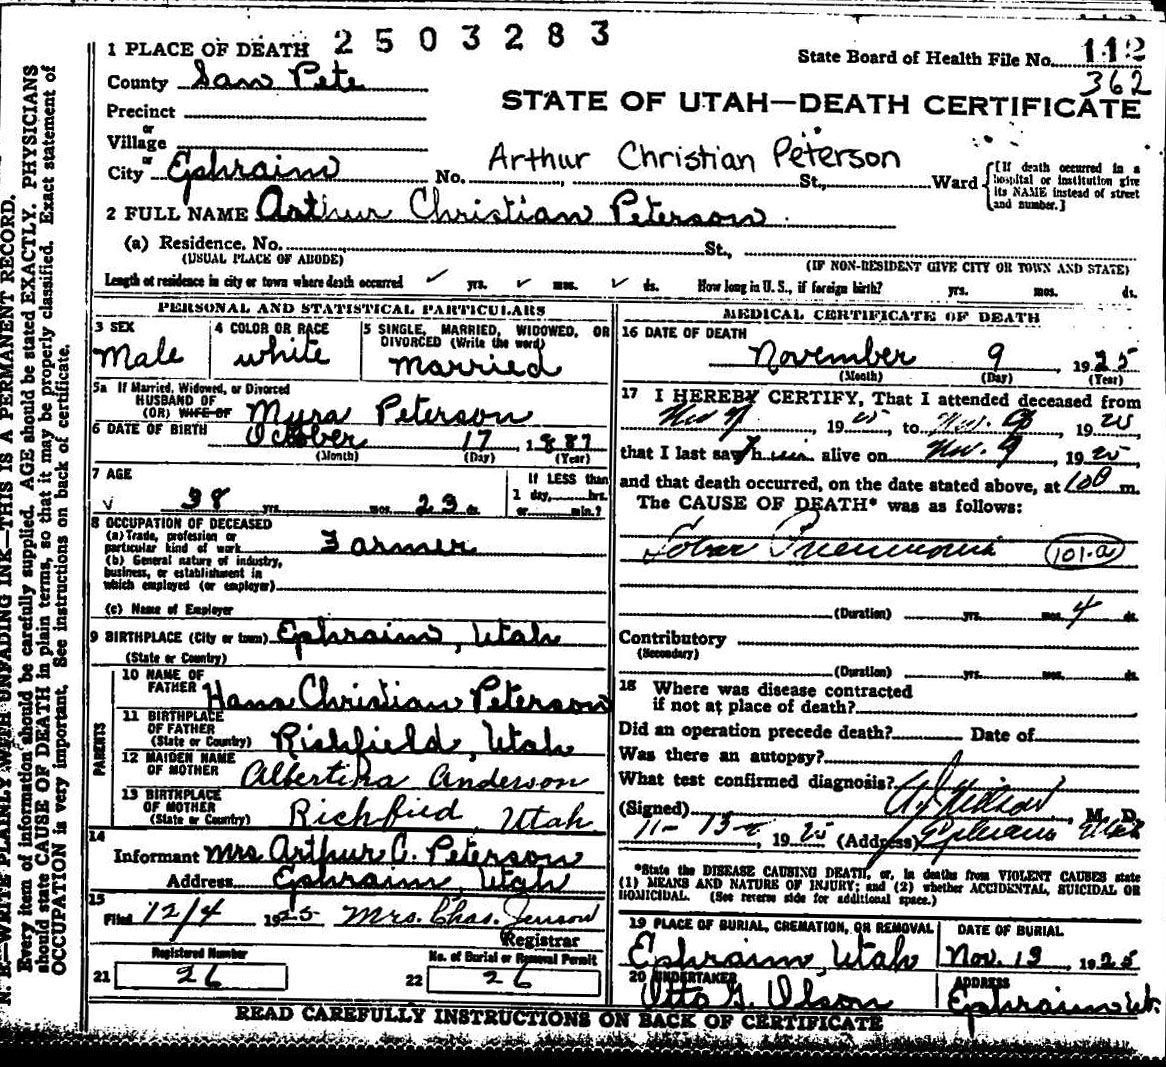 1 PLACE OF DEATH 2503283
State Board of Health File No. 112
362
County San Pete
STATE OF UTAH—DEATH CERTIFICATE
Precinct
or
Village
or
City Ephraim No. St., Ward
Arthur Christian Peterson
[If death occurred in a
hospital or institution give
its NAME instead of street
and number.]
2 FULL NAME Arthur Christian Peterson
(a) Residence. No. St.,
(USUAL PLACE OF ABODE) (IF NON-RESIDENT GIVE CITY OR TOWN AND STATE)
Length of residence in city or town where death occurred yrs. mos. ds. How long in U. S., if foreign birth? yrs. mos. ds.
PERSONAL AND STATISTICAL PARTICULARS
3 SEX
Male
4 COLOR OR RACE
white
5 SINGLE, MARRIED, WIDOWED, OR
DIVORCED (Write the word)
Married
5a If Married, Widowed, or Divorced
HUSBAND OF
(OR) WIFE OF Myra Peterson
6 DATE OF BIRTH October 17, 1887
(Month) (Day) (Year)
7 AGE
38 yrs. mos. 23 ds.
If LESS than
1 day, hrs.
or min.?
8 OCCUPATION OF DECEASED
(a) Trade, profession or
particular kind of work Farmer
(b) General nature of industry,
business, or establishment in
which employed (or employer)
(c) Name of Employer
9 BIRTHPLACE (City or town) Ephraim, Utah
(State or Country)
PARENTS
10 NAME OF
FATHER Hans Christian Peterson
11 BIRTHPLACE
OF FATHER
(State or Country) Richfield, Utah
12 MAIDEN NAME
OF MOTHER Albertina Anderson
13 BIRTHPLACE
OF MOTHER
(State or Country) Richfied, Utah
14
Informant Mrs Arthur C. Peterson
Address Ephraim, Utah
15
Filed 12/4 1925 Mrs. Chas. Jenson
Registrar
Registered Number
21 26
No. of Burial or Removal Permit
22 26
MEDICAL CERTIFICATE OF DEATH
16 DATE OF DEATH
November 9, 1925
(Month) (Day) (Year)
17 I HEREBY CERTIFY, That I attended deceased from
Nov 1925, to Nov. 1925
that I last saw him alive on Nov. 9, 1925,
and that death occurred, on the date stated above, at 100 m.
The CAUSE OF DEATH* was as follows:
Lobar Pneumonia 101-a
(Duration) yrs. mos. 4 ds.
Contributory
(Secondary)
(Duration) yrs. mos. ds.
18 Where was disease contracted
if not at place of death?
Did an operation precede death? Date of
Was there an autopsy?
What test confirmed diagnosis?
(Signed) M. D.
11-13- , 1925 (Address) Ephraim Utah
*State the DISEASE CAUSING DEATH, or, in deaths from VIOLENT CAUSES state
(1) MEANS AND NATURE OF INJURY; and (2) whether ACCIDENTAL, SUICIDAL OR
HOMICIDAL. (See reverse side for additional space.)
19 PLACE OF BURIAL, CREMATION, OR REMOVAL
Ephraim, Utah
DATE OF BURIAL
Nov. 12, 1925
20 UNDERTAKER
Otto G. Olson
ADDRESS
Ephraim Ut.
READ CAREFULLY INSTRUCTIONS ON BACK OF CERTIFICATE
N. B.—WRITE PLAINLY WITH UNFADING INK—THIS IS A PERMANENT RECORD.
Every item of information should be carefully supplied. AGE should be stated EXACTLY. PHYSICIANS
should state CAUSE OF DEATH in plain terms, so that it may be properly classified. Exact statement of
OCCUPATION is very important. See instructions on back of certificate.